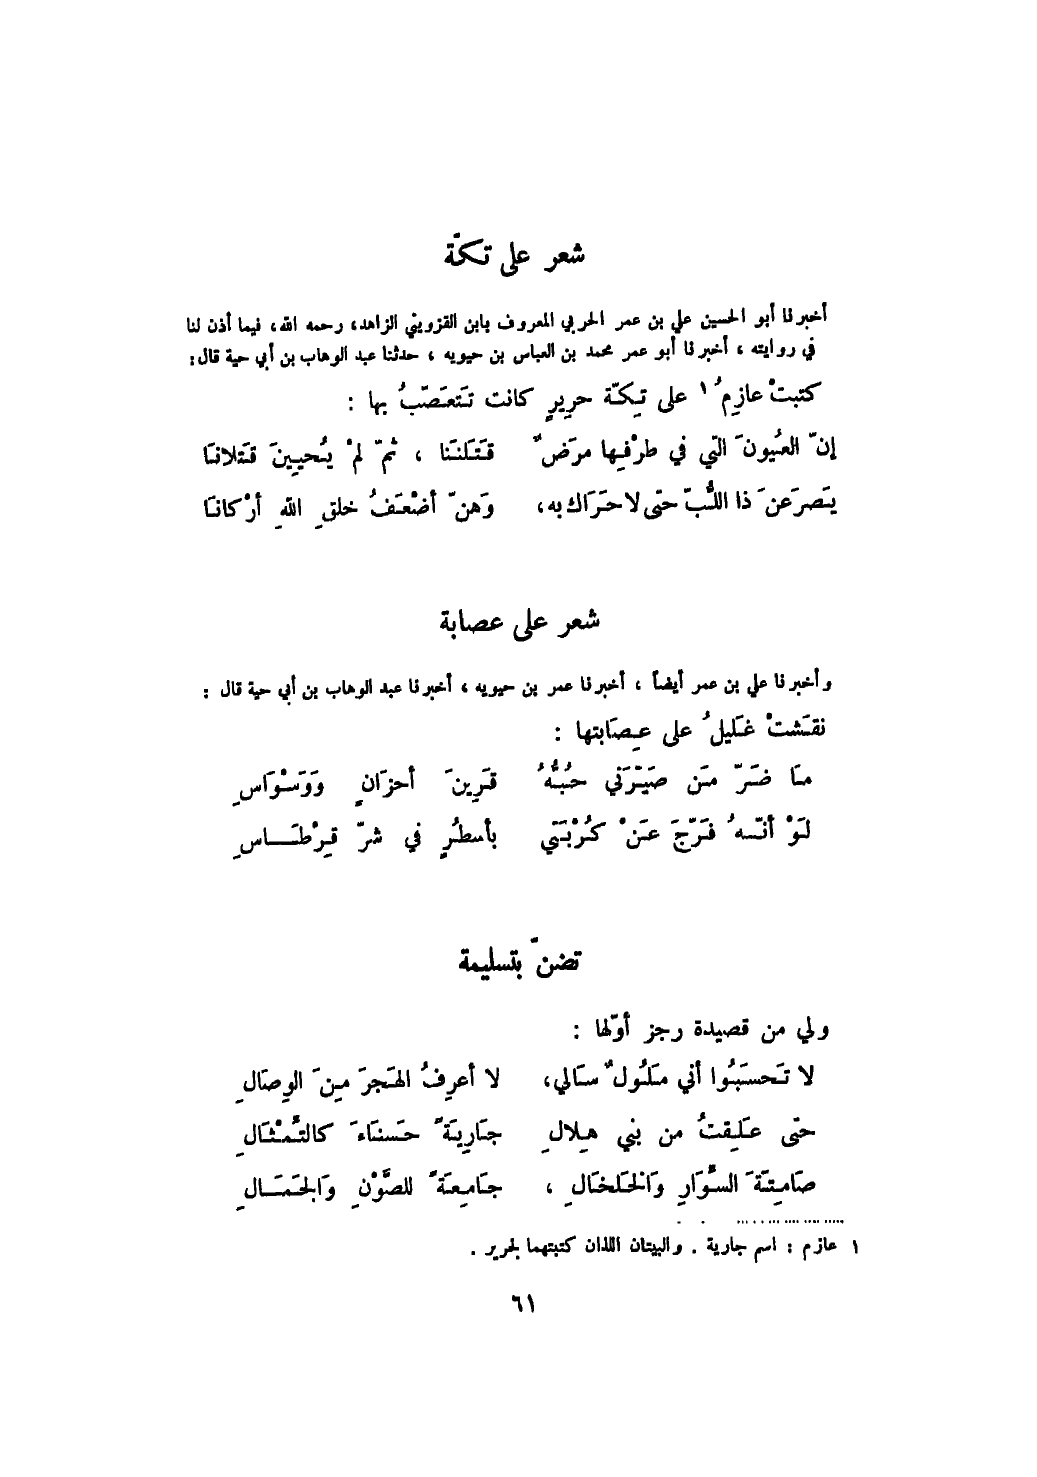 شعر على تكّة
أخبرنا أبو الحسين علي بن عمر الحربي المعروف بابن القزويني الزاهد، رحمه الله، فيما أذن لنا
في روايته ، أخبرنا أبو عمر محمد بن العباس بن حيويه ، حدثنا عبد الوهاب بن أبي حية قال :
كتبتْ عازِمُ ١ على تِكّة حريرٍ كانت تَتعَصّبُ بها :
إنّ العُيونَ التّي في طرْفِها مرَضٌ قَتَلنَنا ، ثمّ لمْ يُحيِينَ قَتلانَا
يَصرَعنَ ذا اللُّبّ حتّى لا حَرَاك به، وَهنّ أضْعَفُ خلقِ اللهِ أرْكانَا
شعر على عصابة
وأخبرنا علي بن عمر أيضاً ، أخبرنا عمر بن حيويه ، أخبرنا عبد الوهاب بن أبي حية قال :
نقَشتْ غَليلُ على عِصَابتها :
مَا ضَرّ مَن صَيّرَني حُبُّهُ قَرِينَ أحزَانٍ وَوَسْوَاسِ
لَوْ أنّه فَرّجَ عَنْ كُرْبَتي بأسطُرٍ في شرّ قِرْطَاسِ
تضنّ بتسليمة
ولي من قصيدة رجز أوّلها :
لا تَحسَبُوا أني مَلُولٌ سَالي، لا أعرِفُ الهَجرَ مِنَ الوِصَالِ
حتّى عَلِقتُ من بني هِلالِ جَارِيَةً حَسنَاءَ كالتِّمْثَالِ
صَامِتَةَ السِّوَارِ وَالخَلخَالِ ، جَامِعَةً للصَّوْنِ وَالجَمَالِ
١ عازم : اسم جارية . والبيتان اللذان كتبتهما لجرير .
٦١